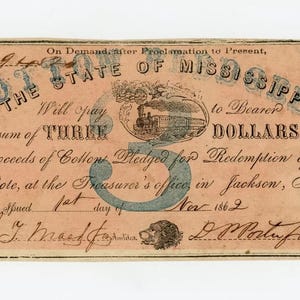 On Demand, after Proclamation to Present,
COTTON PLEDGED
THE STATE OF MISSISSIPP
Will pay to Bearer
sum of THREE DOLLARS
3
oceeds of Cotton Pledged for Redemption
ote, at the Treasurer's office, in Jackson,
ssued 1st day of Nov 1862
Auditor